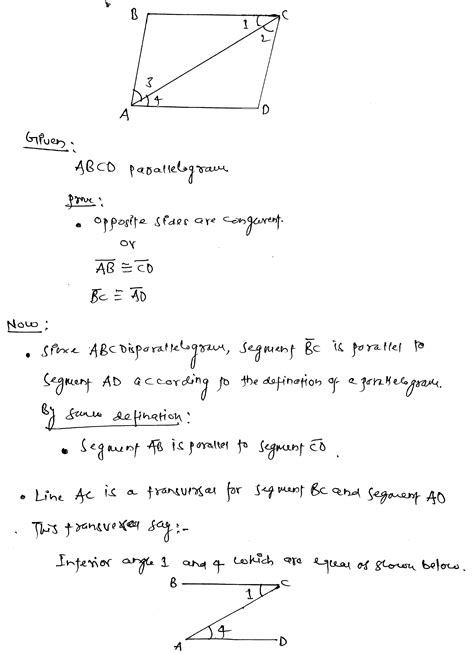 B
C
1
2
3
4
A
D
Given:
ABCD parallelogram
prove:
• opposite sides are congurent.
or
AB ≅ CD
BC ≅ AD
Now:
• since ABCD is parallelogram, segment BC is parallel to
segment AD according to the defination of a parallelogram.
By same defination:
• Segment AB is parallel to segment CD.
• Line AC is a transversal for segment BC and segment AD
. This transversal say:-
Interior angle 1 and 4 which are equal as shown below.
B
C
1
4
A
D